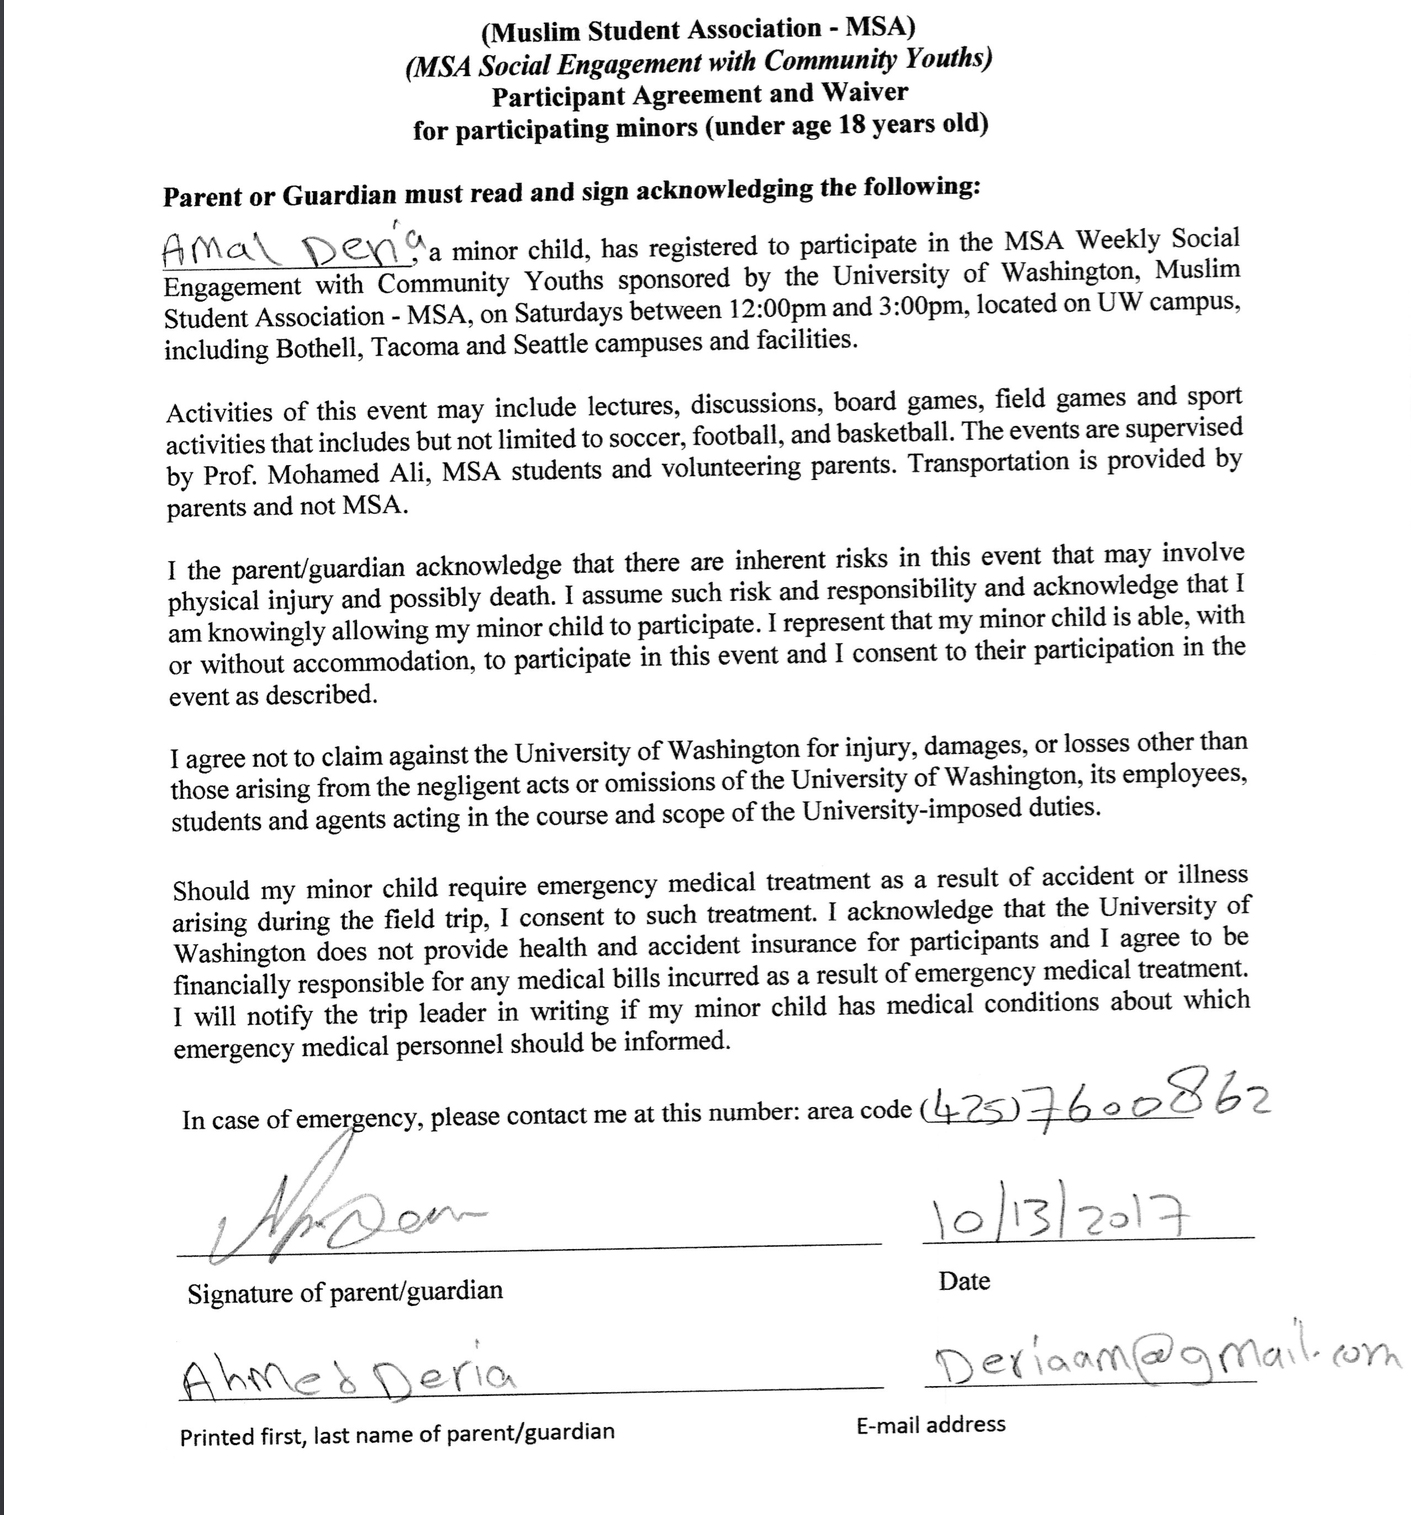 (Muslim Student Association - MSA)
(MSA Social Engagement with Community Youths)
Participant Agreement and Waiver
for participating minors (under age 18 years old)
Parent or Guardian must read and sign acknowledging the following:
Amal Deria, a minor child, has registered to participate in the MSA Weekly Social
Engagement with Community Youths sponsored by the University of Washington, Muslim
Student Association - MSA, on Saturdays between 12:00pm and 3:00pm, located on UW campus,
including Bothell, Tacoma and Seattle campuses and facilities.
Activities of this event may include lectures, discussions, board games, field games and sport
activities that includes but not limited to soccer, football, and basketball. The events are supervised
by Prof. Mohamed Ali, MSA students and volunteering parents. Transportation is provided by
parents and not MSA.
I the parent/guardian acknowledge that there are inherent risks in this event that may involve
physical injury and possibly death. I assume such risk and responsibility and acknowledge that I
am knowingly allowing my minor child to participate. I represent that my minor child is able, with
or without accommodation, to participate in this event and I consent to their participation in the
event as described.
I agree not to claim against the University of Washington for injury, damages, or losses other than
those arising from the negligent acts or omissions of the University of Washington, its employees,
students and agents acting in the course and scope of the University-imposed duties.
Should my minor child require emergency medical treatment as a result of accident or illness
arising during the field trip, I consent to such treatment. I acknowledge that the University of
Washington does not provide health and accident insurance for participants and I agree to be
financially responsible for any medical bills incurred as a result of emergency medical treatment.
I will notify the trip leader in writing if my minor child has medical conditions about which
emergency medical personnel should be informed.
In case of emergency, please contact me at this number: area code (425) 7600862
10/13/2017
Signature of parent/guardian Date
Ahmed Deria Deriaam@gmail.com
Printed first, last name of parent/guardian E-mail address